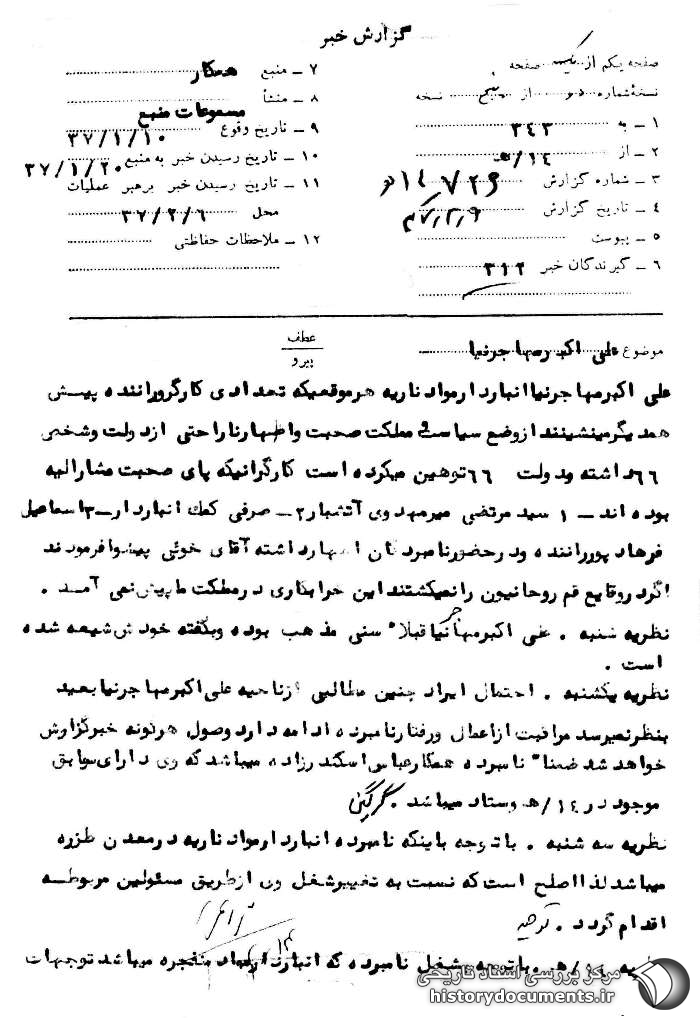 گزارش خبر
صفحه یکم از یک صفحه
نسخهٔ شماره دو از پنج نسخه
۱ ـ به ۳۴۳
۲ ـ از ۱۴/ھ
۳ ـ شماره گزارش
۴ ـ تاریخ گزارش
۵ ـ پیوست
۶ ـ گیرندگان خبر ۳۱۲
۷ ـ منبع همکار
۸ ـ منشأ مسموعات منبع
۹ ـ تاریخ وقوع ۳۷/۱/۱۰
۱۰ ـ تاریخ رسیدن خبر به منبع ۳۷/۱/۲۰
۱۱ ـ تاریخ رسیدن خبر برهبر عملیات
محل ۳۷/۲/۶
۱۲ ـ ملاحظات حفاظتی
عطف
پیرو
موضوع علی اکبر مهاجرنیا
علی اکبرمهاجرنیاانباردارمواد ناریه هرموقعیکه تعدادی کارگروراننده پیش
همدیگرمینشینند ازوضع سیاسی مملکت صحبت واظهارناراحتی ازدولت وشخص
۶۶ داشته ودولت ۶۶ توهین میکرده است کارگرانیکه پای صحبت مشارالیه
بوده اند ـ ۱ سید مرتضی میرمهدوی آتشبار۲ـ صرفی کمک انباردار ـ۳اسماعیل
فرهاد پورراننده ودرحضورنامبردگان اظهارداشته آقای خوئی پیشوا فرمودند
اگردروقایع قم روحانیون رانمیکشتند این خرابکاری درمملکت ماپیش نمی آمد .
نظریه شنبه . علی اکبرمهاجرنیا قبلا" سنی مذهب بوده وبگفته خودش شیعه شده
است .
نظریه یکشنبه . احتمال ایراد چنین مطالبی ازناحیه علی اکبرمهاجرنیا بعید
بنظرنمیرسد مراقبت ازاعمال ورفتارنامبرده ادامه دارد وصول هرگونه خبرگزارش
خواهد شد ضمنا" نامبرده همکارعباس اسکندرزاده میباشد که وی دارای سوابق
موجود در ۱۴/ھ وستاد میباشد .
نظریه سه شنبه . باتوجه باینکه نامبرده انباردارمواد ناریه درمعدن طزره
میباشد لذا اصلح است که نسبت به تغییرشغل وی ازطریق مسئولین مربوطه
اقدام گردد .
نظریه ۱۴/ھ . باتوجه بشغل نامبرده که انباردارمواد منفجره میباشد توجهات
مرکز بررسی اسناد تاریخی
historydocuments.ir